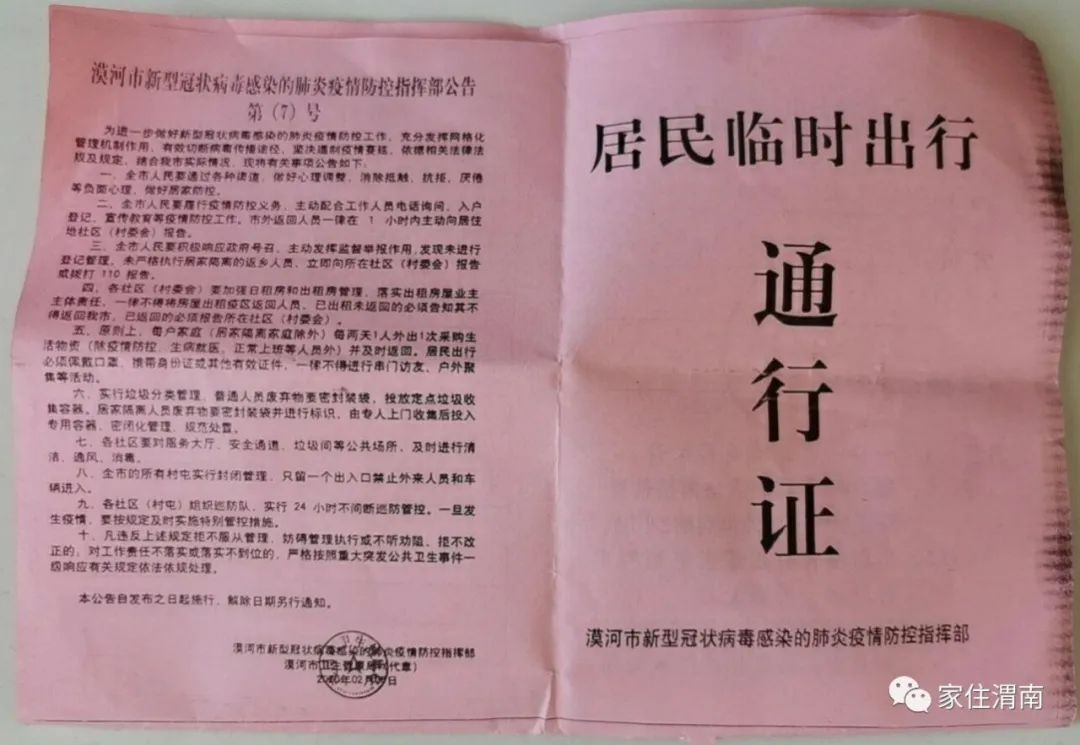 漠河市新型冠状病毒感染的肺炎疫情防控指挥部公告
第（7）号
为进一步做好新型冠状病毒感染的肺炎疫情防控工作，充分发挥网格化
管理机制作用，有效切断病毒传播途径，坚决遏制疫情蔓延，依据相关法律法
规及规定，结合我市实际情况，现将有关事项公告如下：
一、全市人民要通过各种渠道，做好心理调整，消除抵触、抗拒、厌倦
等负面心理，做好居家防控。
二、全市人民要履行疫情防控义务，主动配合工作人员电话询问、入户
登记、宣传教育等疫情防控工作。市外返回人员一律在 1 小时内主动向居住
地社区（村委会）报告。
三、全市人民要积极响应政府号召，主动发挥监督举报作用，发现未进行
登记管理、未严格执行居家隔离的返乡人员，立即向所在社区（村委会）报告
或拨打 110 报告。
四、各社区（村委会）要加强日租房和出租房管理，落实出租房屋业主
主体责任，一律不得将房屋出租疫区返回人员，已出租未返回的必须告知其不
得返回我市，已返回的必须报告所在社区（村委会）。
五、原则上，每户家庭（居家隔离家庭除外）每两天1人外出1次采购生
活物资（除疫情防控、生病就医、正常上班等人员外）并及时返回。居民出行
必须佩戴口罩，携带身份证或其他有效证件，一律不得进行串门访友、户外聚
集等活动。
六、实行垃圾分类管理，普通人员废弃物要密封装袋，投放定点垃圾收
集容器。居家隔离人员废弃物要密封装袋并进行标识，由专人上门收集后投入
专用容器，密闭化管理，规范处置。
七、各社区要对服务大厅、安全通道、垃圾间等公共场所，及时进行清
洁、通风、消毒。
八、全市的所有村屯实行封闭管理，只留一个出入口禁止外来人员和车
辆进入。
九、各社区（村屯）组织巡防队，实行 24 小时不间断巡防管控。一旦发
生疫情，要按规定及时实施特别管控措施。
十、凡违反上述规定拒不服从管理、妨碍管理执行或不听劝阻、拒不改
正的；对工作责任不落实或落实不到位的，严格按照重大突发公共卫生事件一
级响应有关规定依法依规处理。
本公告自发布之日起施行，解除日期另行通知。
漠河市新型冠状病毒感染的肺炎疫情防控指挥部
漠河市卫生健康局（代章）
2020年02月 日
居民临时出行
通
行
证
漠河市新型冠状病毒感染的肺炎疫情防控指挥部
家住渭南